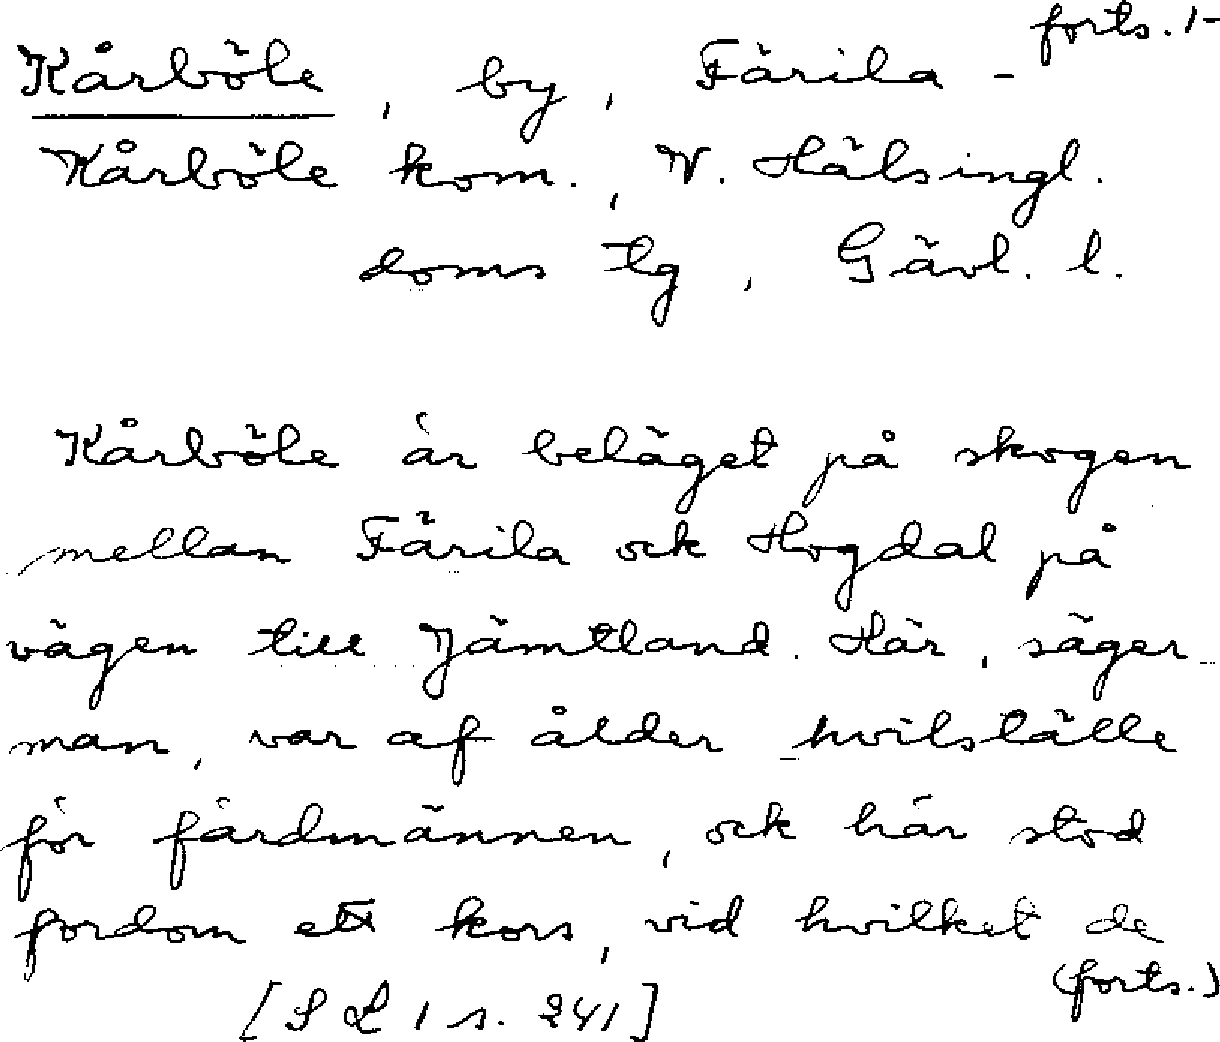 forts. 1-
Kårböle, by, Färila -
Kårböle kom., V. Hälsingl.
doms tg, Gävl. l.
Kårböle är beläget på skogen
mellan Färila ock Hogdal på
vägen till Jämtland. Här, säger
man, var af ålder hvilställe
för färdmännen, ock här stod
fordom ett kors, vid hvilket de
(forts.)
[SL 1 s. 241]